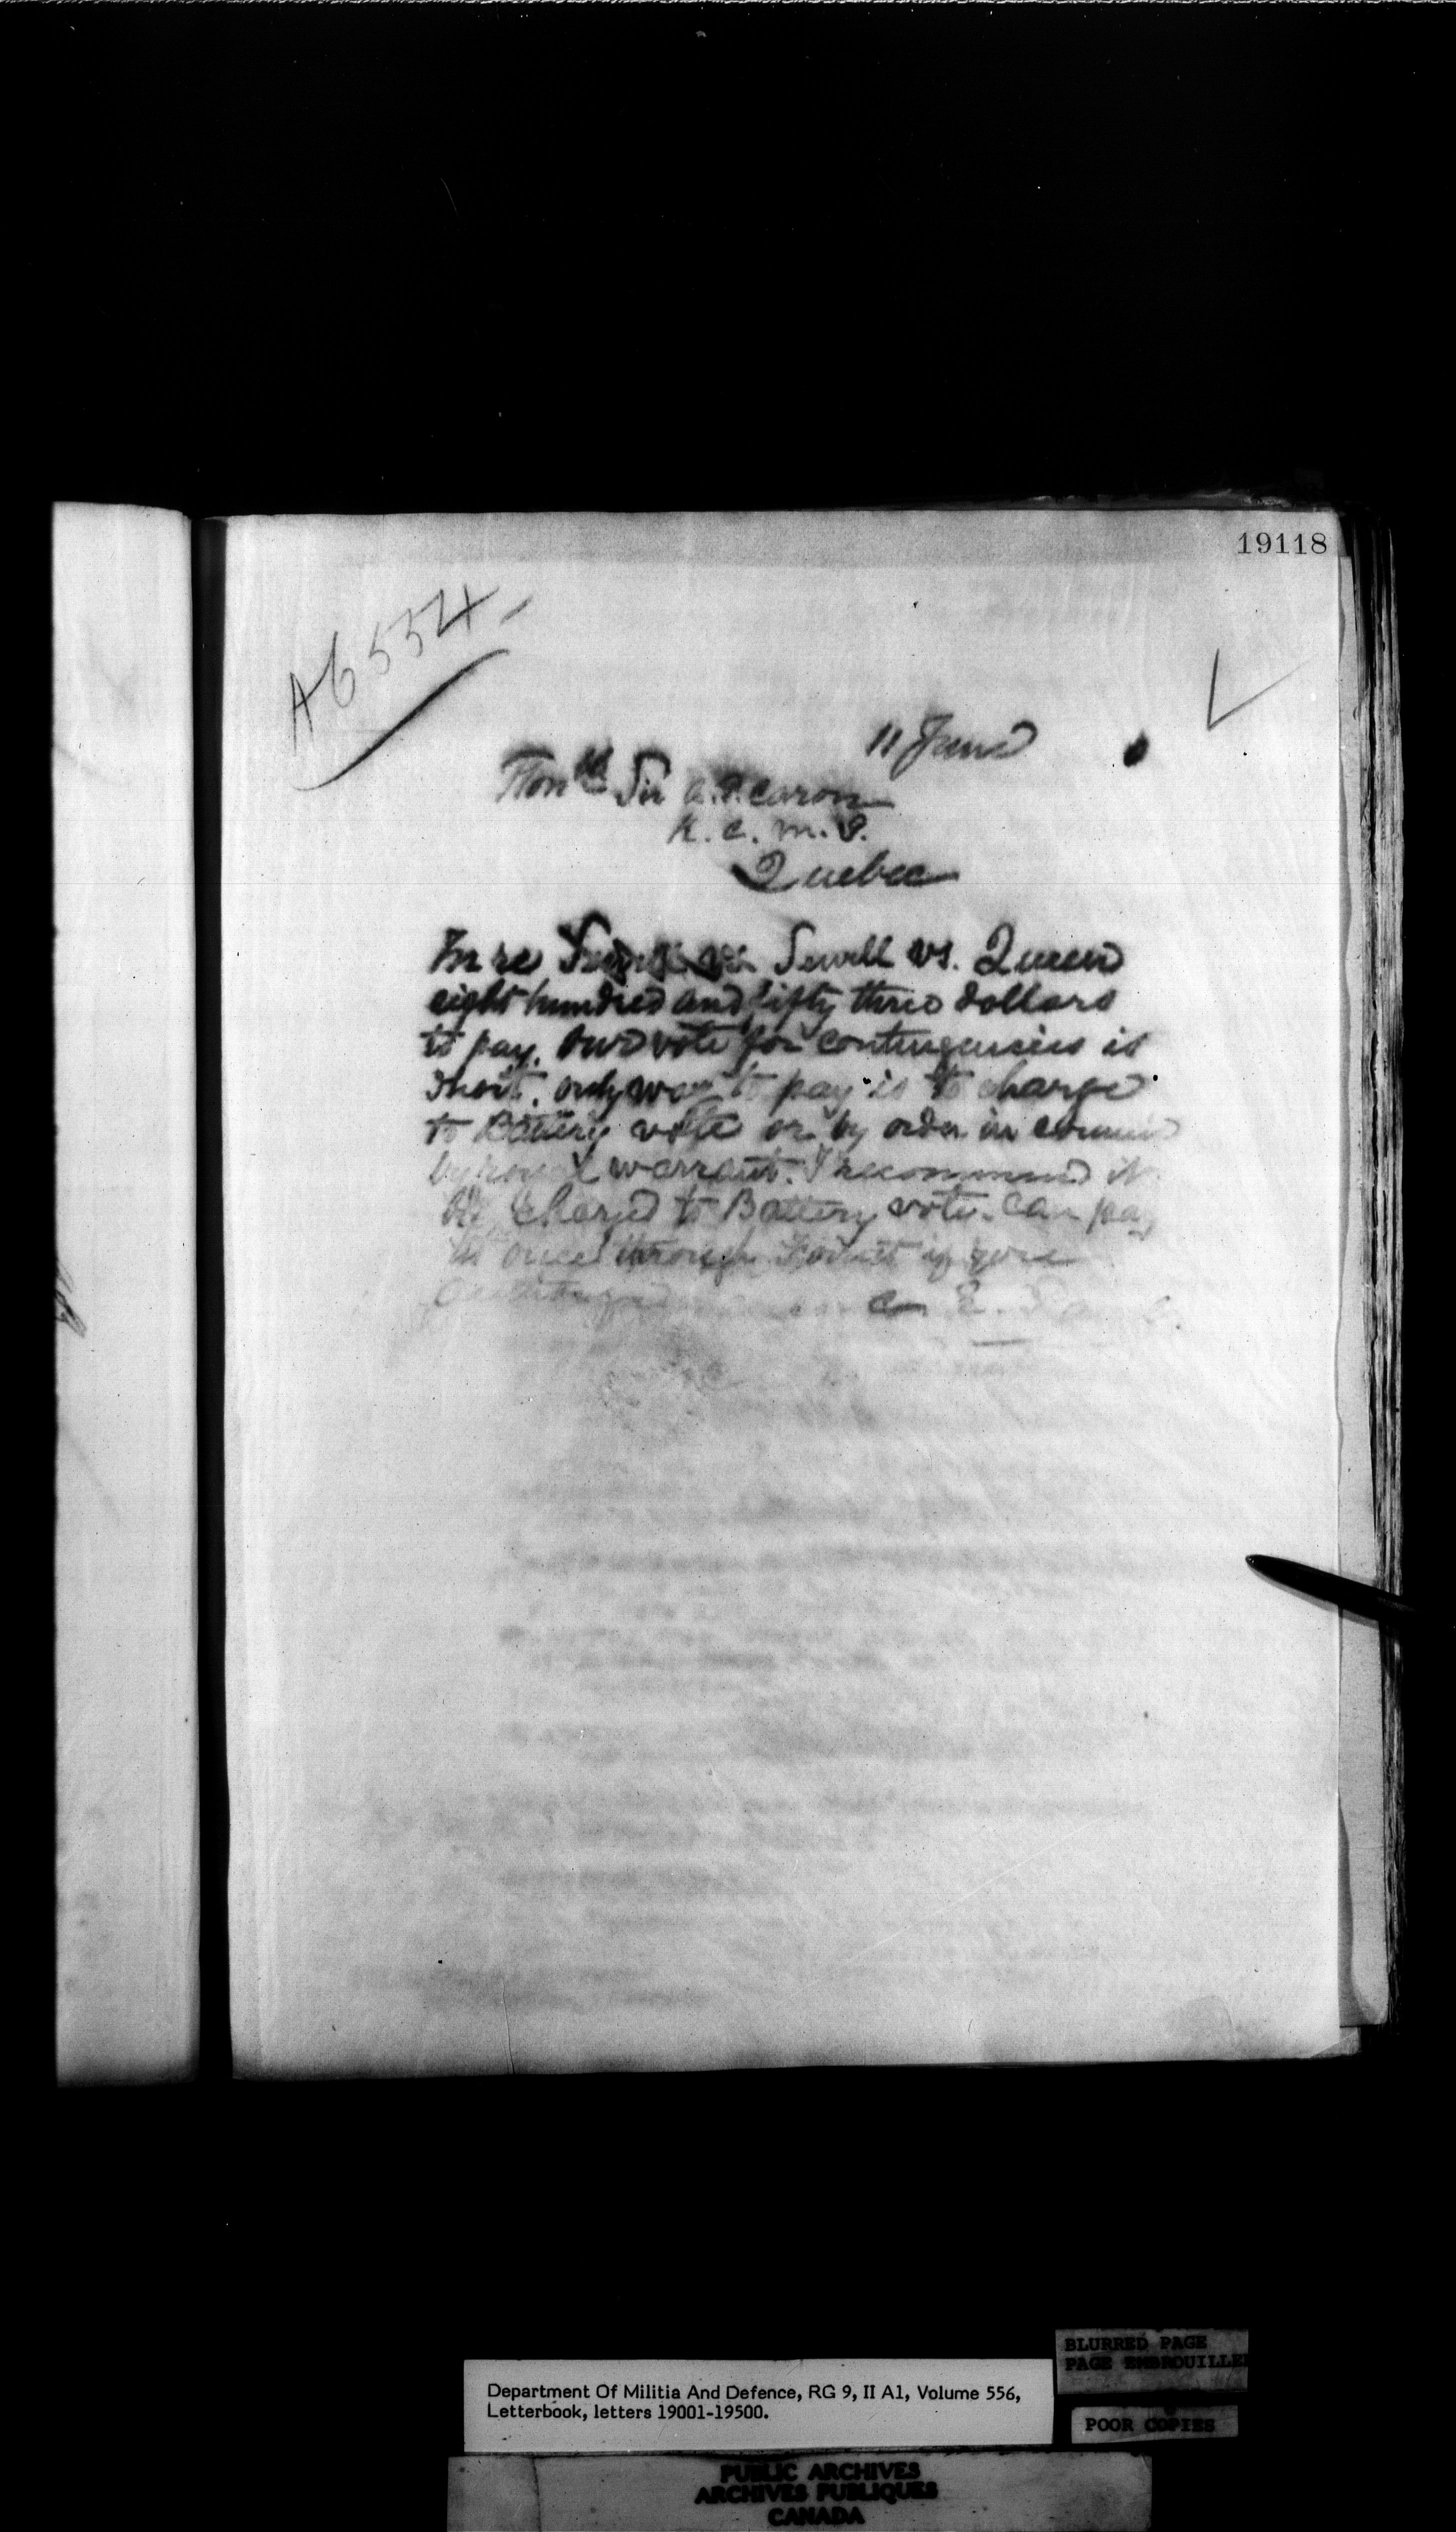 19118
A6534
11 June
Honble Sir A.P. Caron
K.C.M.G.
Quebec
In re Sewell vs. Queen
eight hundred and fifty three dollars
to pay. Our vote for contingencies is
short. only way to pay is to charge
to Battery vote or by order in council
by warrant. I recommend it
be charged to Battery vote. Can pay
at once through if you
C. E. P
Department Of Militia And Defence, RG 9, II A1, Volume 556,
Letterbook, letters 19001-19500.
BLURRED PAGE
PAGE EMBROUILLE
POOR COPIES
PUBLIC ARCHIVES
ARCHIVES PUBLIQUES
CANADA